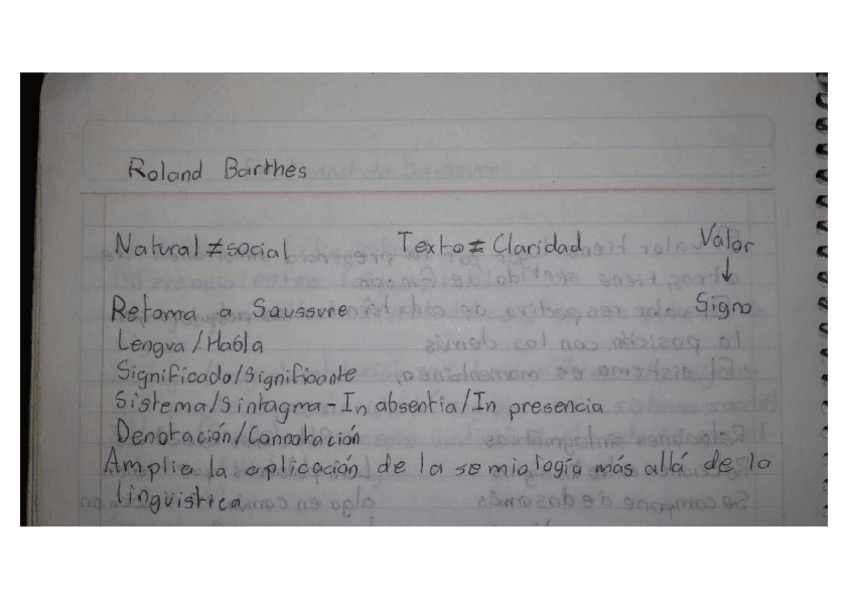 Roland Barthes
Natural ≠ social Texto ≠ Claridad Valor
↓
Retoma a Saussure Signo
Lengua / Habla
Significado/Significante
Sistema/Sintagma - In absentia/In presencia
Denotación/Connotación
Amplia la aplicación de la semiología más allá de la
linguistica